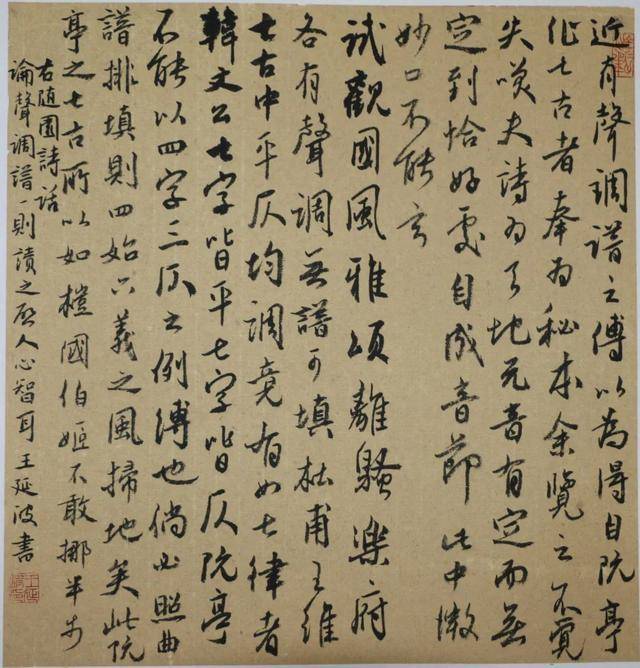 近有聲調譜之傳以為得自阮亭
作七古者奉為秘本余覽之不覺
失笑夫詩為天地元音有定而無
定到恰好處自成音節此中微
妙口不能言
試觀國風雅頌離騷樂府
各有聲調無譜可填杜甫王維
七古中平仄均調竟有如七律者
韓文公七字皆平七字皆仄阮亭
不能以四字三仄之例縛也倘必照曲
譜排填則四始六義之風掃地矣此阮
亭之七古所以如國伯姬不敢挪半步
右隨園詩話
論聲調譜一則讀之啟人心智耳王延波書